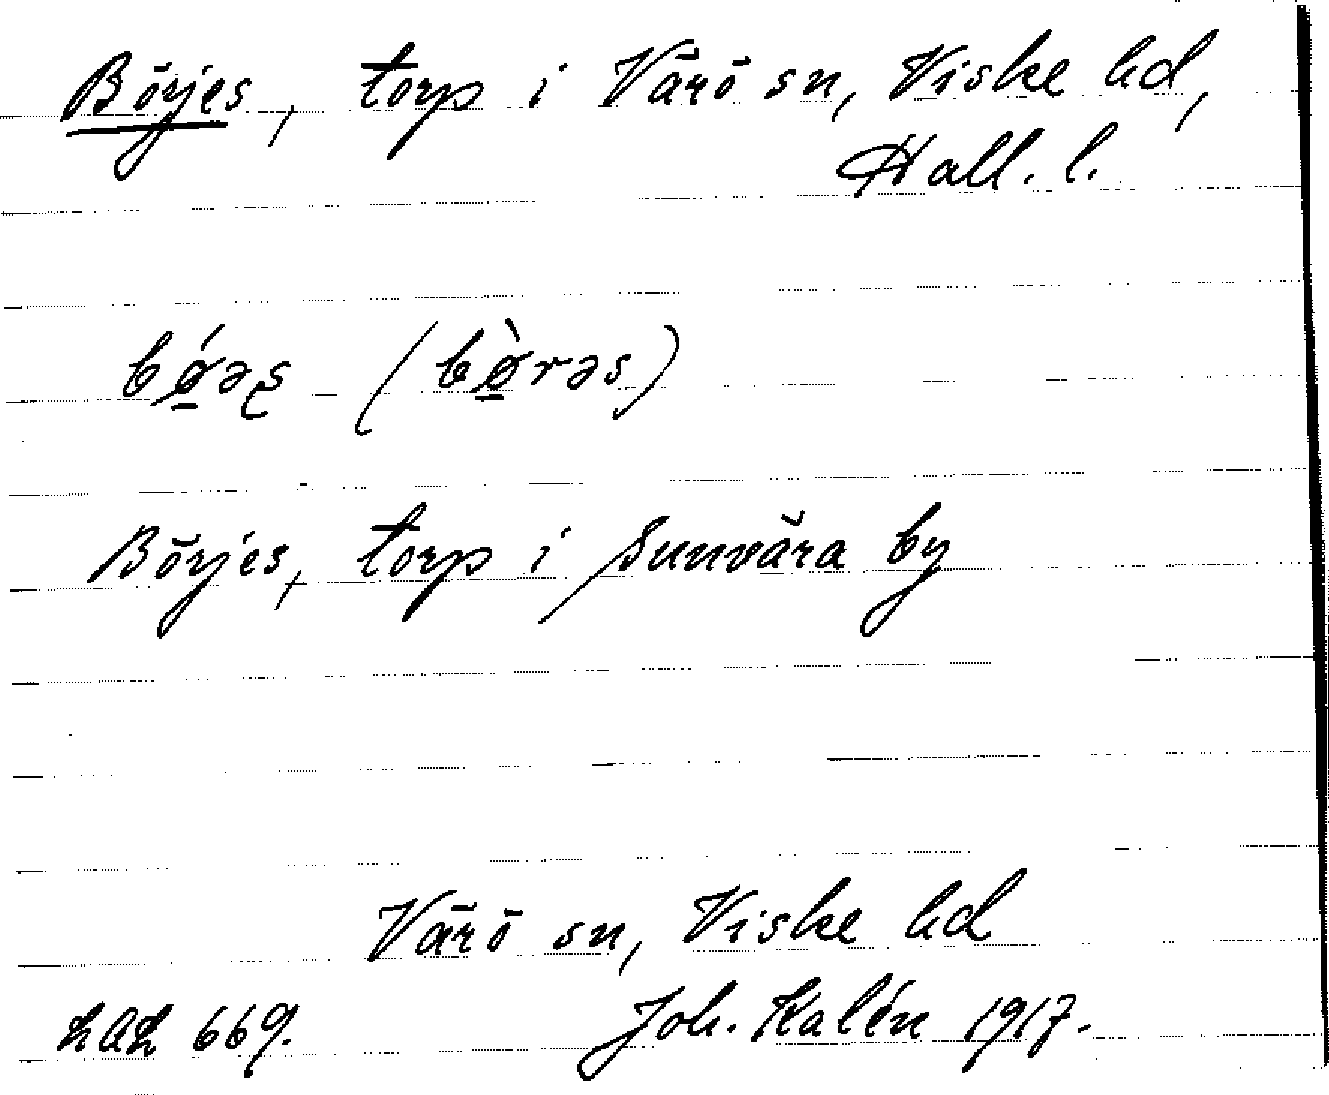 Börjes, torp i Värö sn, Viske hd,
Hall. l.
bǿ̲əʂ (bø̲̀rəs)
Börjes, torp i Sunvära by
Värö sn, Viske hd
hah 669. Joh. Kalén 1917.